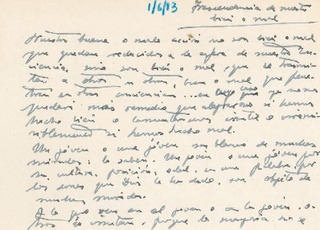 1/6/83 Trascendencia de nuestro
bien o mal
Nuestras buenas o malas acciones no son bien o mal
que quedan reducidas a la esfera de nuestra con-
ciencia, sino son bien o mal que se transmi-
ten a otros; es decir, bien o mal que pene-
tra en otras conciencias, en cuyo caso ya no nos
quedará más remedio que alegrarnos si hemos
hecho bien o lamentarnos inútil e irremi-
siblemente si hemos hecho mal.
Un joven o una joven son blanco de muchas
miradas; lo saben. Un joven o una joven por
su cultura, posición, edad, en una palabra por
los dones que Dios le ha dado, son objeto de
muchas miradas.
A lo que ven en el joven o en la joven, o-
tros lo imitan, porque la mayoría no se